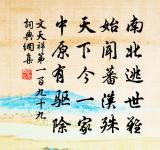 南北逃世難
始聞蕃漢殊
天下今一家
中原有驅除
文天祥第一百九十九
詞典網集